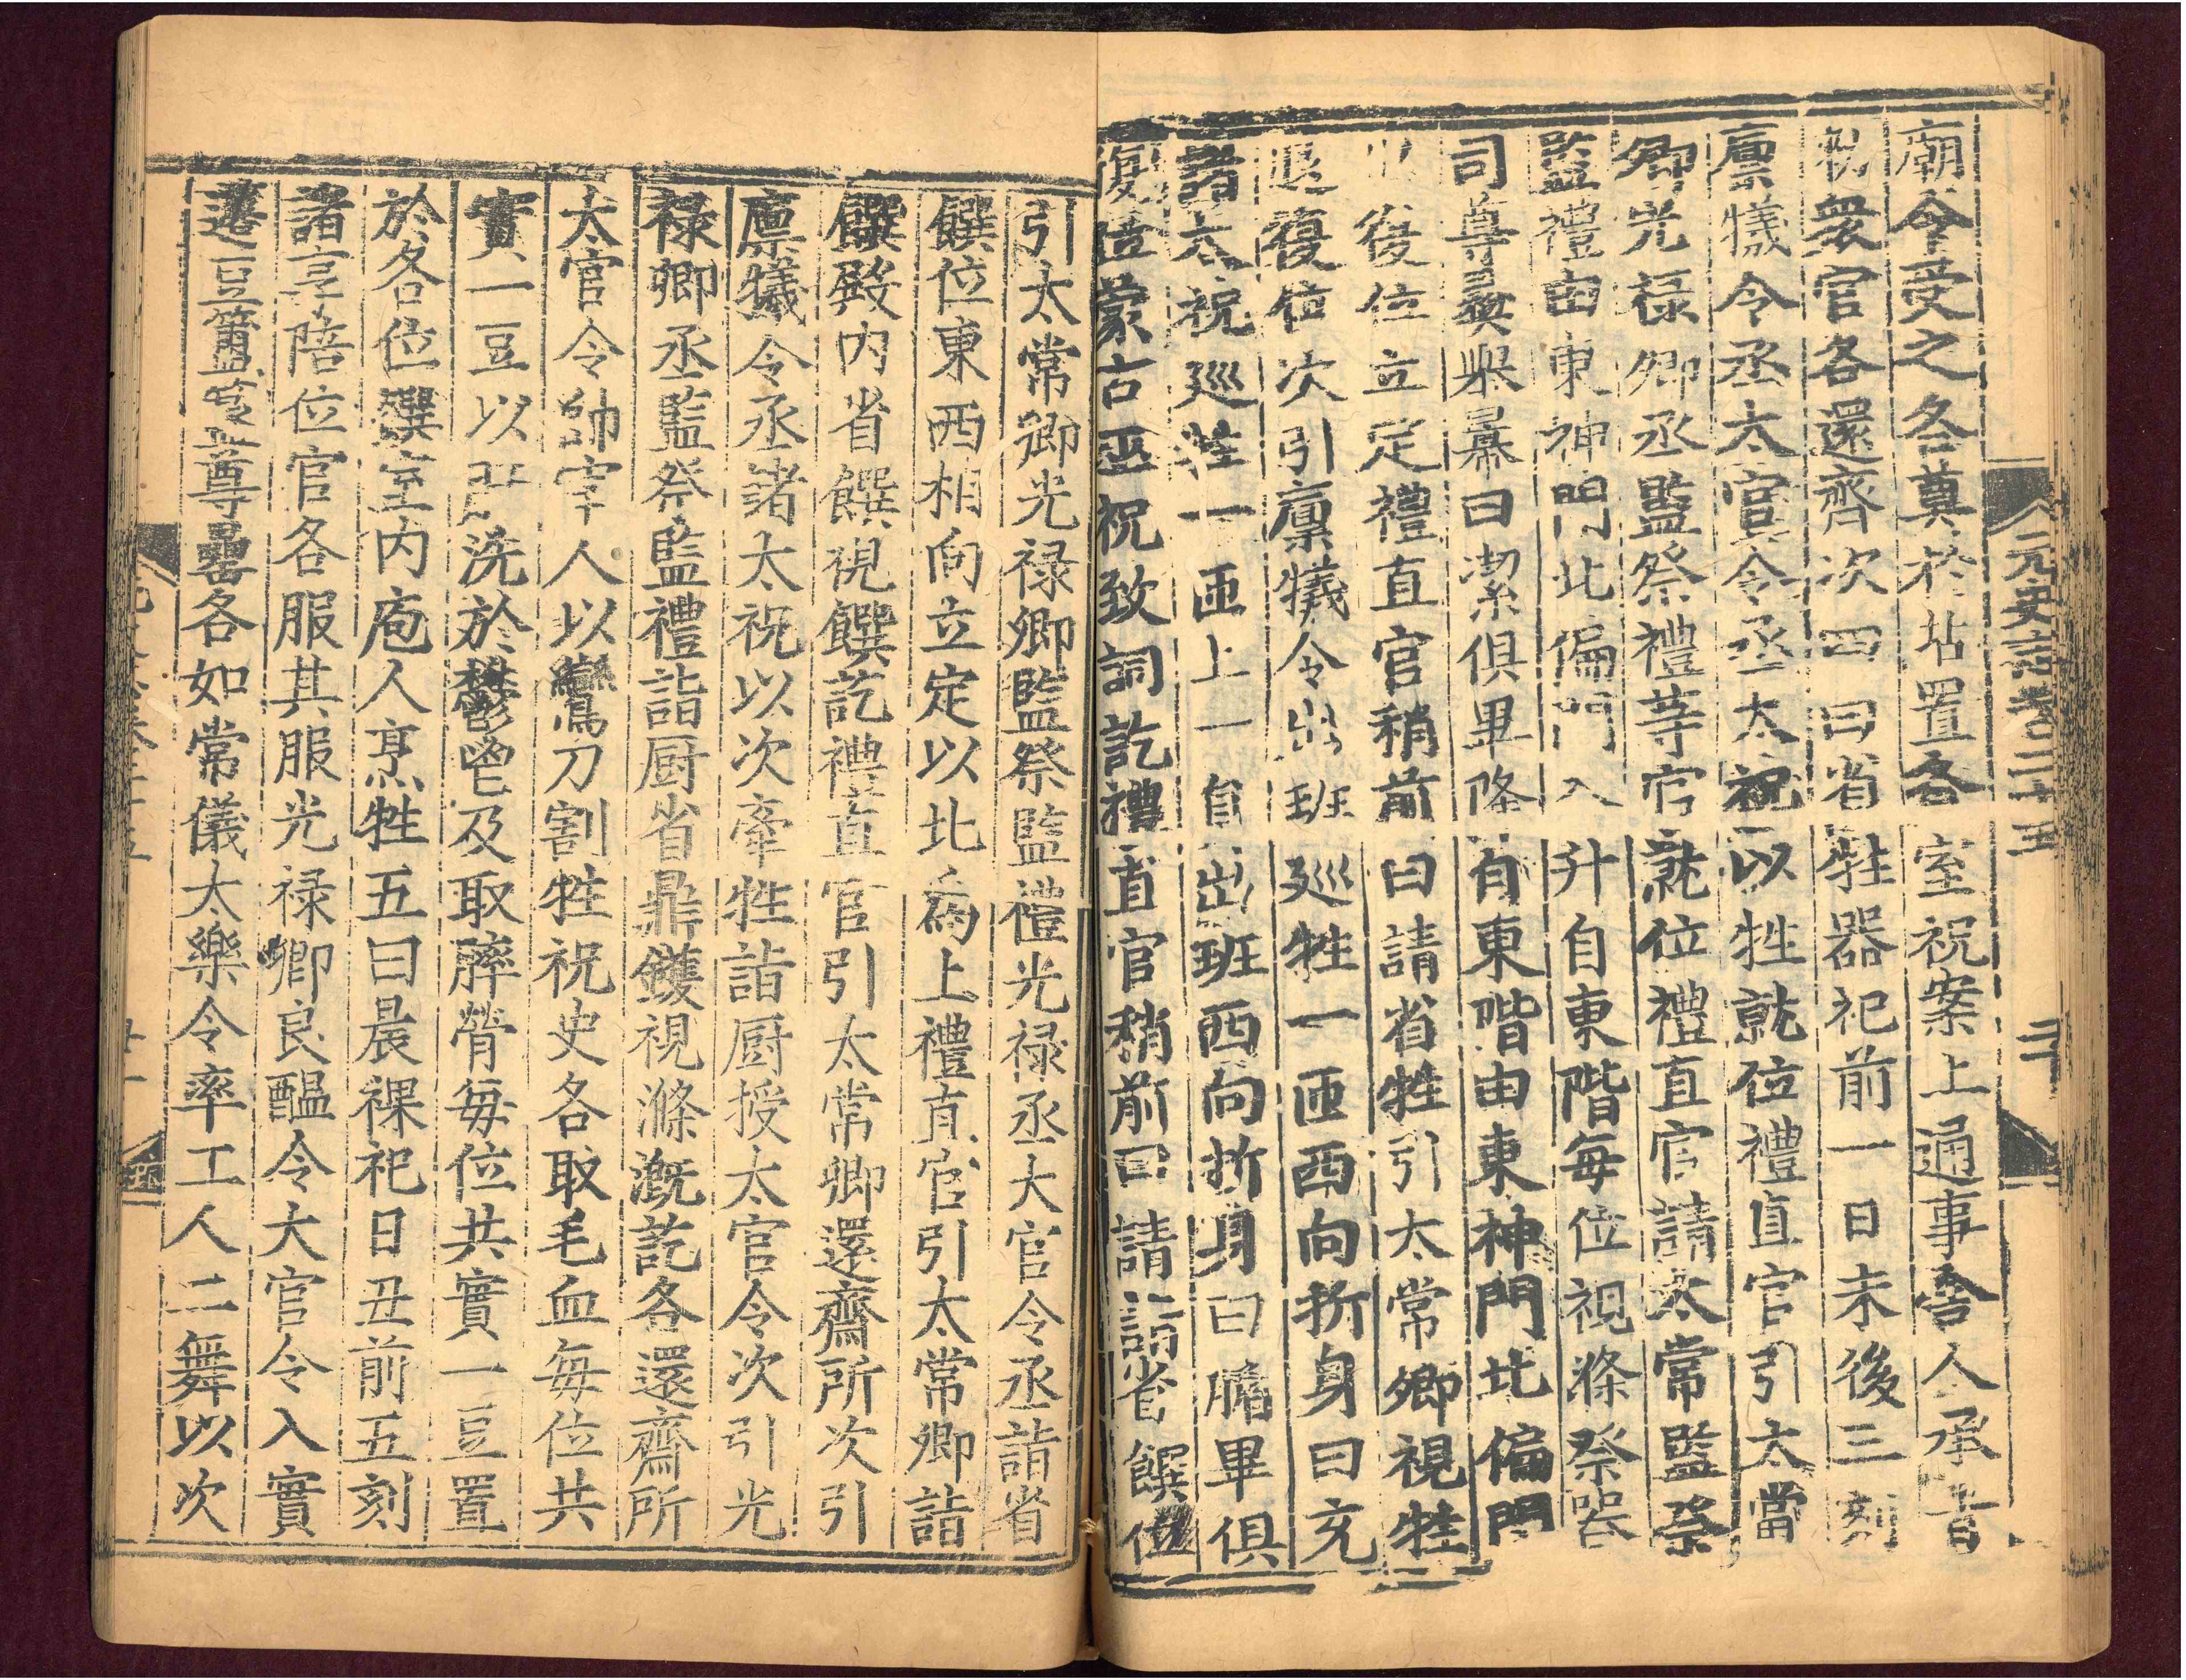 廟令受之各奠於坫置各室祝案上通事舍人承旨
祝衆官各還齊次四曰省牲器祀前一日未後三刻
廪犧令丞太官令丞太祝以牲就位禮直官引太常
卿光禄卿丞監祭禮等官就位禮直官請太常監祭
監禮由東神門北偏門入升自東階每位視滌祭器
司尊彛舉羃曰潔俱畢降自東階由東神門北偏門
復位立定禮直官稍前曰請省牲引太常卿視牲
退復位次引廪犧令出班巡牲一匝西向折身曰充
諸太祝巡牲一匝上一員出班西向折身曰腯畢俱
復位蒙古巫祝致詞訖禮直官稍前曰請詣省饌位
引太常卿光禄卿監祭監禮光禄丞大官令丞詣省
饌位東西相向立定以北爲上禮直官引太常卿詣
饌殿内省饌視饌訖禮直官引太常卿還齋所次引
廪犧令丞諸太祝以次牽牲詣厨授太官令次引光
禄卿丞監祭監禮詣厨省鼎鑊視滌漑訖各還齋所
太官令帥宰人以鸞刀割牲祝史各取毛血每位共
實一豆以洗於鬱鬯及取膟膋每位共實一豆置
於各位饌室内庖人烹牲五曰晨祼祀日丑前五刻
諸享陪位官各服其服光禄卿良醖令大官令入實
籩豆簠簋尊罍各如常儀太樂令率工人二舞以次
元史志卷二十五
二十